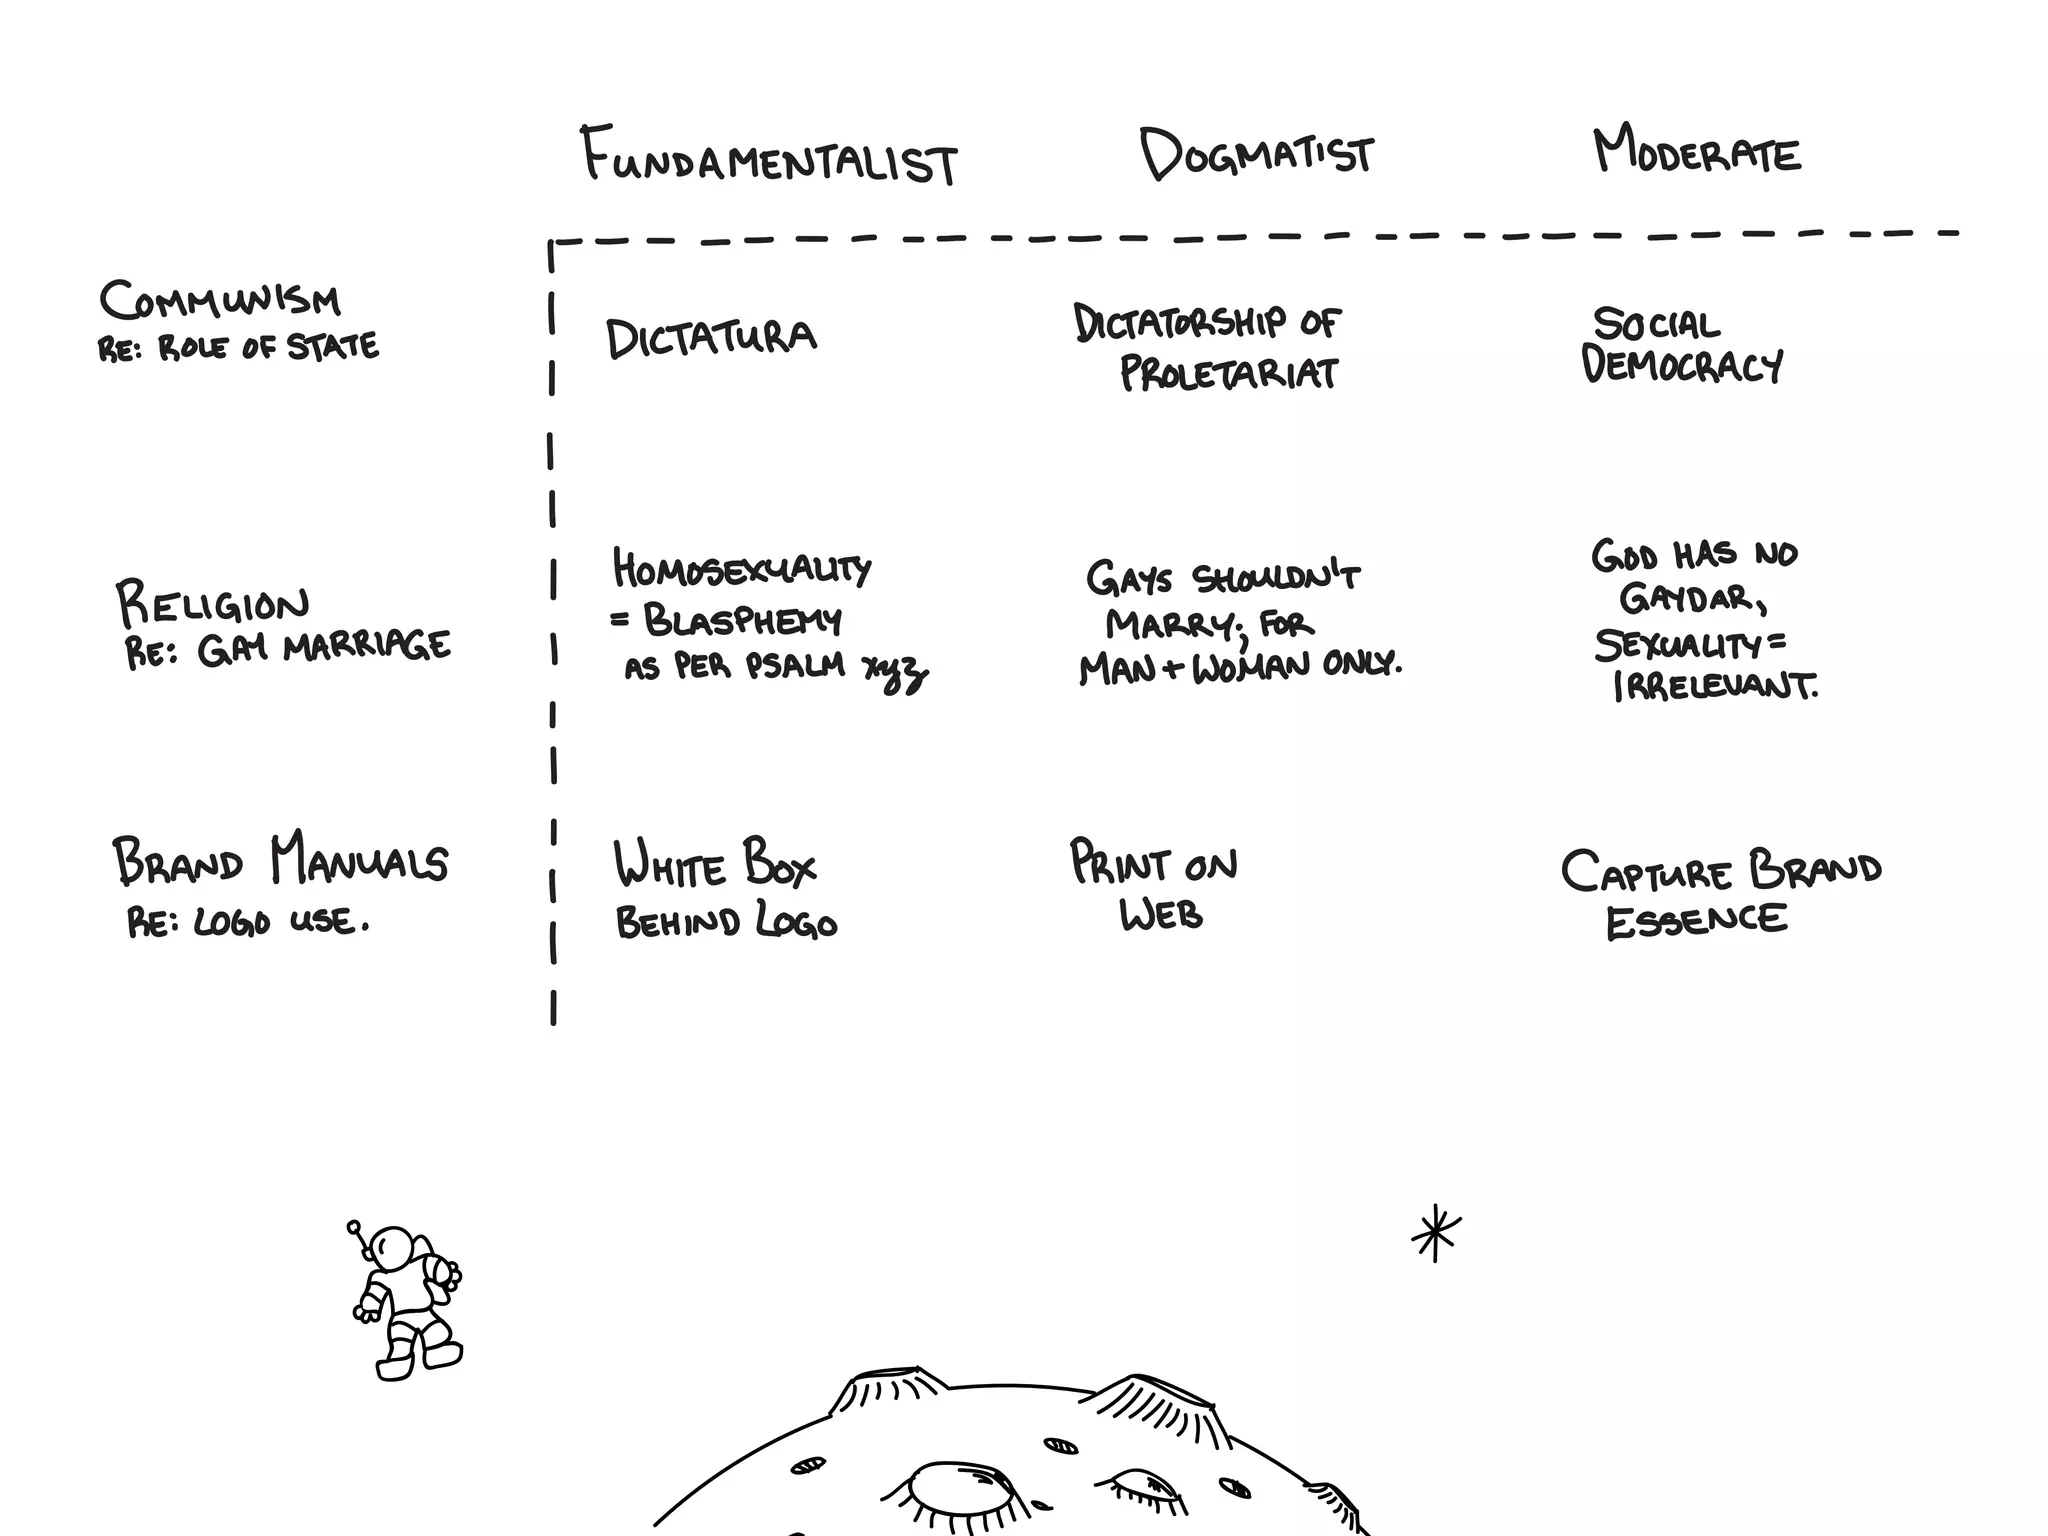 FUNDAMENTALIST DOGMATIST MODERATE
COMMUNISM
RE: ROLE OF STATE
DICTATURA
DICTATORSHIP OF
PROLETARIAT
SOCIAL
DEMOCRACY
RELIGION
RE: GAY MARRIAGE
HOMOSEXUALITY
= BLASPHEMY
AS PER PSALM xyz
GAYS SHOULDN'T
MARRY; FOR
MAN + WOMAN ONLY.
GOD HAS NO
GAYDAR,
SEXUALITY =
IRRELEVANT.
BRAND MANUALS
RE: LOGO USE.
WHITE BOX
BEHIND LOGO
PRINT ON
WEB
CAPTURE BRAND
ESSENCE